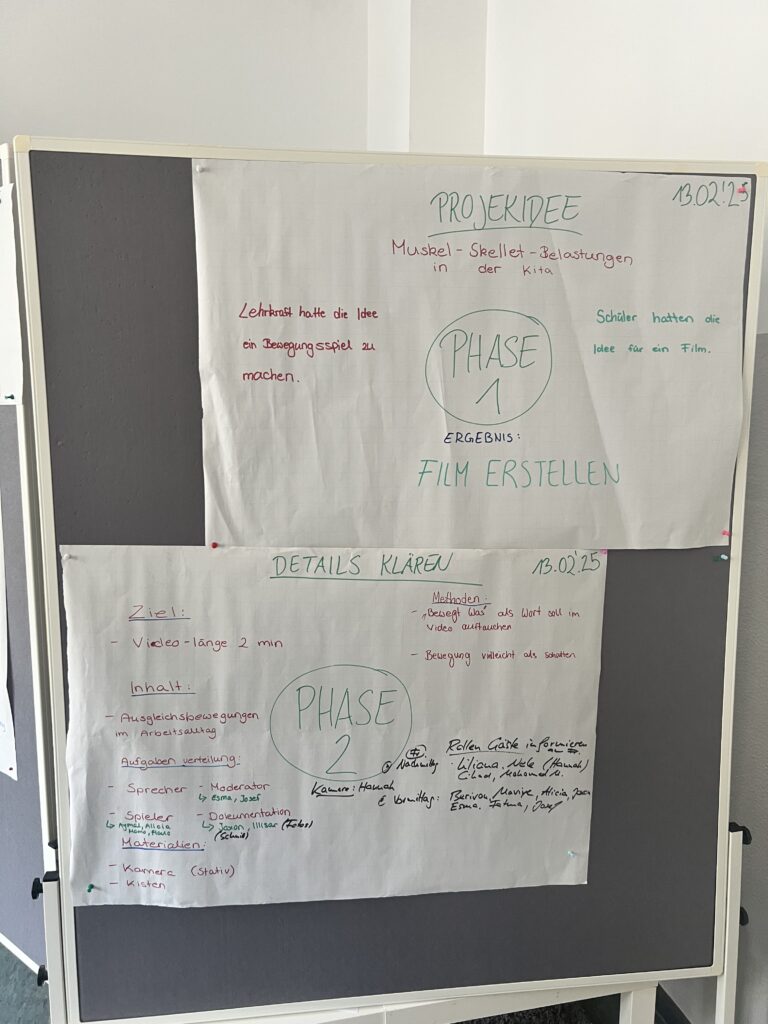 PROJEKIDEE
13.02!25
Muskel-Skellet-Belastungen
in der Kita
Lehrkraft hatte die Idee
ein Bewegungsspiel zu
machen.
PHASE
1
Schüler hatten die
Idee für ein Film.
ERGEBNIS:
FILM ERSTELLEN
DETAILS KLÄREN
13.02!25
Ziel:
- Video-länge 2 min
Inhalt:
- Ausgleichsbewegungen
im Arbeitsalltag
Aufgaben verteilung:
- Sprecher
- Moderator
↳ Esma, Josef
- Spieler
- Dokumentation
↳ Jason, (Fotos)
(Schnitt)
Materialien:
- Kamera (Stativ)
- Kisten
PHASE
2
Methoden:
- „Bewegt Was" als Wort soll im
Video auftauchen
- Bewegung vielleicht als Schatten
Kamera: Hannah
Rollen Gäste informieren
Nachmittag: Liliana, Nele (Hannah)
Mohamed M.
Vormittag: Alicia,
Esma, Fatma,